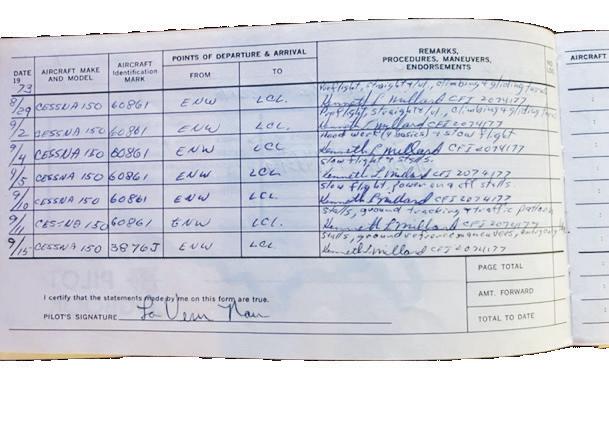 POINTS OF DEPARTURE & ARRIVAL
REMARKS, PROCEDURES, MANEUVERS, ENDORSEMENTS
DATE 19 73 AIRCRAFT MAKE AND MODEL AIRCRAFT Identification MARK FROM TO
AIRCRAFT
Preflight, straight & lvl, climbing & gliding turns
8/29 CESSNA 150 60861 ENW LCL. Kenneth L Millard CFI 2074177
Preflight, straight & lvl, climbing & gliding turns
9/2 CESSNA 150 60861 ENW LCL. Kenneth L Millard CFI 2074177
Hood work (4 basics) & slow flight
9/4 CESSNA 150 60861 ENW LCL. Kenneth L Millard CFI 2074177
slow flight & stalls.
9/5 CESSNA 150 60861 ENW LCL. Kenneth L Millard CFI 2074177
slow flight, power on & off stalls.
CESSNA 150 60861 ENW LCL. Kenneth L Millard CFI 2074177
stalls, ground tracking & traffic pattern
9/11 CESSNA 150 60861 ENW LCL. Kenneth L Millard CFI 2074177
stalls, ground reference maneuvers,
9/15 CESSNA 150 3876J ENW LCL. Kenneth L Millard CFI 2074177
PAGE TOTAL
I certify that the statements made by me on this form are true.
AMT. FORWARD
PILOT'S SIGNATURE La Vern
TOTAL TO DATE